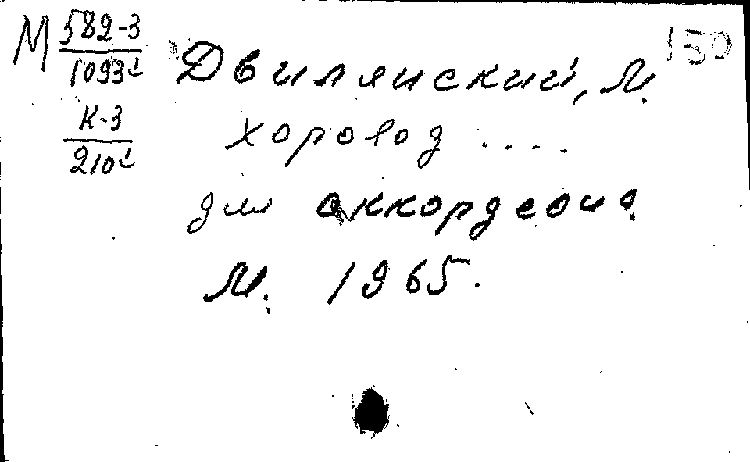 М 582-3
1093
К-3
210
150
Двилянский, М.
хоровод ....
для аккордеона.
М. 1965.